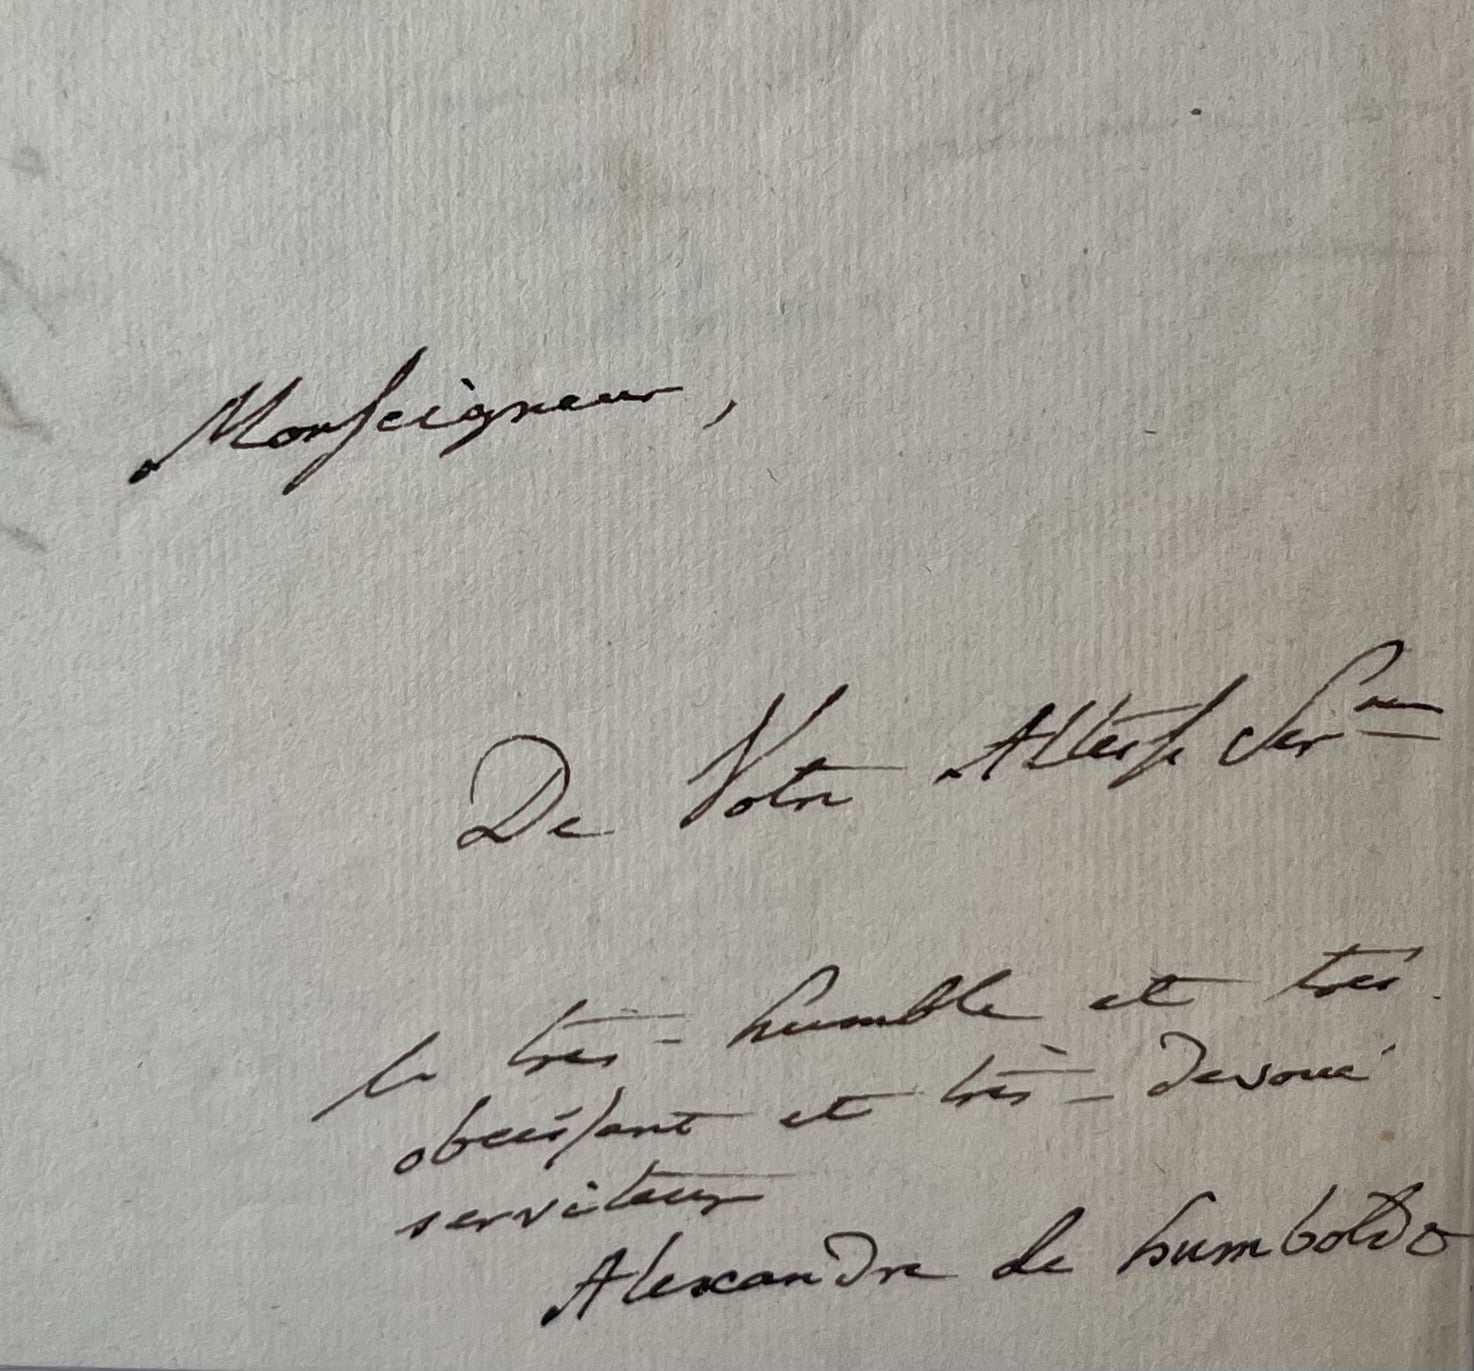 Monseigneur,
De Votre Altesse Ser^me
le très-humble et tres
obeissant et très-devoué
serviteur
Alexandre de Humboldt